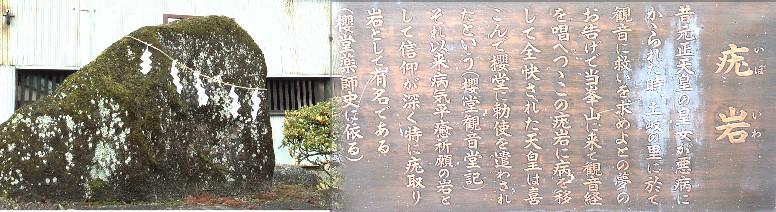 疣岩
いぼ いわ
昔元正天皇の皇女が悪病に
かゝられた時 土岐の里に於て
観音に救いを求めよとの夢の
お告げで当峯山に来て観音経
を唱へつゝこの疣岩に病を移
して全快された天皇は喜
こんで櫻堂に勅使を遣わされ
たという(櫻堂観音堂記)
それ以来病気平癒祈願の岩と
して信仰が深く時に疣取り
岩として有名である
(櫻堂薬師史に依る)